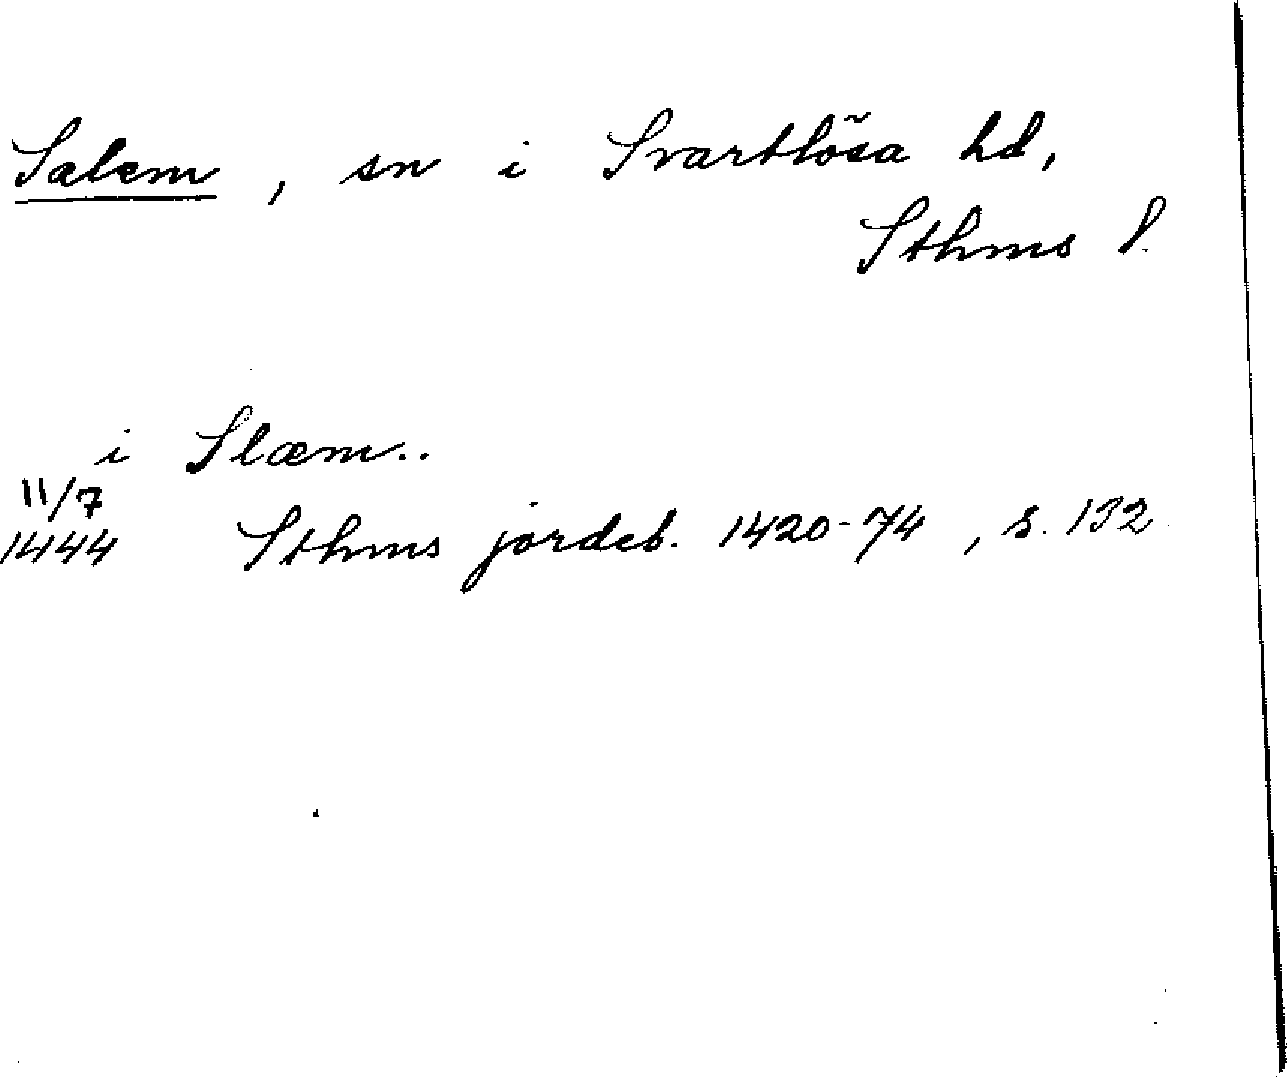 Salem, sn i Svartlösa hd,
Sthms l.
i Slæm..
11/7
1444 Sthms jordeb. 1420-74, s. 132